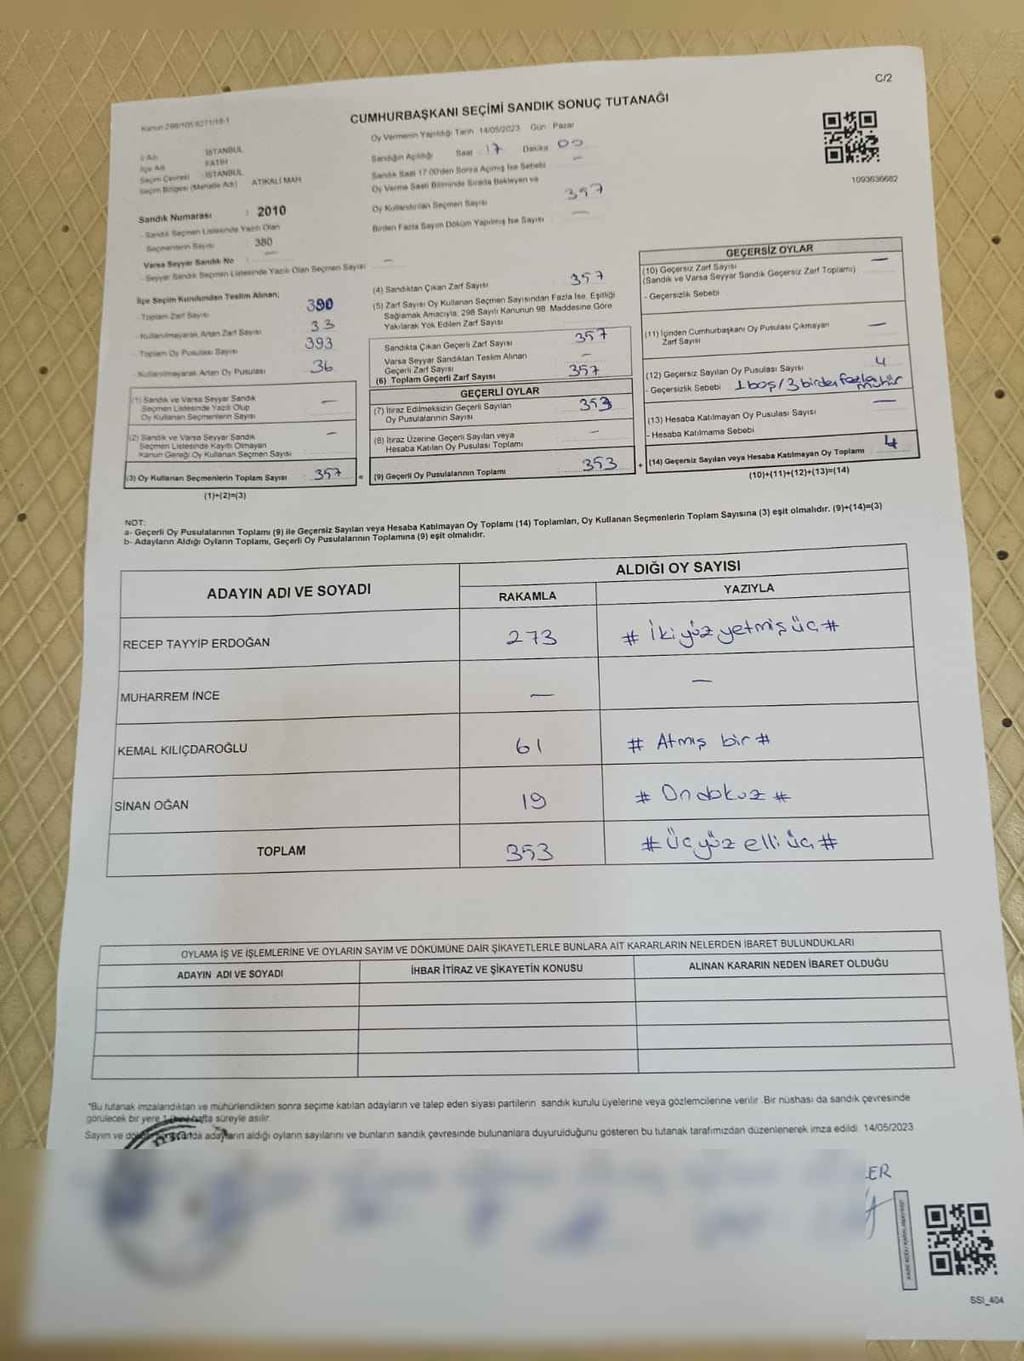 C/2
CUMHURBAŞKANI SEÇİMİ SANDIK SONUÇ TUTANAĞI
Oy Vermenin Yapıldığı Tarih 14/05/2023 Gün Pazar
İSTANBUL
FATİH
İSTANBUL
Seçim Bölgesi (Mahalle Adı) ATİKALİ MAH
Sandığın Açıldığı Saat 17 Dakika 00
Sandık Saat 17:00'den Sonra Açılmış İse Sebebi —
Oy Verme Saati Bitiminde Sırada Bekleyen ve
Oy Kullandırılan Seçmen Sayısı 357
Birden Fazla Sayım Döküm Yapılmış İse Sayısı —
1093636682
Sandık Numarası : 2010
- Sandık Seçmen Listesinde Yazılı Olan
Seçmenlerin Sayısı 380
Varsa Seyyar Sandık No
- Seyyar Sandık Seçmen Listesinde Yazılı Olan Seçmen Sayısı —
İlçe Seçim Kurulundan Teslim Alınan;
- Toplam Zarf Sayısı 390
- Kullanılmayarak Artan Zarf Sayısı 33
- Toplam Oy Pusulası Sayısı 393
- Kullanılmayarak Artan Oy Pusulası 36
(1) Sandık ve Varsa Seyyar Sandık
Seçmen Listesinde Yazılı Olup
Oy Kullanan Seçmenlerin Sayısı —
(2) Sandık ve Varsa Seyyar Sandık
Seçmen Listesinde Kayıtlı Olmayan
Kanun Gereği Oy Kullanan Seçmen Sayısı —
(3) Oy Kullanan Seçmenlerin Toplam Sayısı 357 =
(1)+(2)=(3)
(4) Sandıktan Çıkan Zarf Sayısı 357
(5) Zarf Sayısı Oy Kullanan Seçmen Sayısından Fazla İse, Eşitliği
Sağlamak Amacıyla, 298 Sayılı Kanunun 98. Maddesine Göre
Yakılarak Yok Edilen Zarf Sayısı
Sandıkta Çıkan Geçerli Zarf Sayısı 357
Varsa Seyyar Sandıktan Teslim Alınan
Geçerli Zarf Sayısı —
(6) Toplam Geçerli Zarf Sayısı 357
GEÇERLİ OYLAR
(7) İtiraz Edilmeksizin Geçerli Sayılan
Oy Pusulalarının Sayısı 353
(8) İtiraz Üzerine Geçerli Sayılan veya
Hesaba Katılan Oy Pusulası Toplamı —
(9) Geçerli Oy Pusulalarının Toplamı 353 +
GEÇERSİZ OYLAR
(10) Geçersiz Zarf Sayısı —
(Sandık ve Varsa Seyyar Sandık Geçersiz Zarf Toplamı)
- Geçersizlik Sebebi
(11) İçinden Cumhurbaşkanı Oy Pusulası Çıkmayan
Zarf Sayısı —
(12) Geçersiz Sayılan Oy Pusulası Sayısı 4
- Geçersizlik Sebebi 1 boş / 3 birden fazla mühür
(13) Hesaba Katılmayan Oy Pusulası Sayısı —
- Hesaba Katılmama Sebebi
(14) Geçersiz Sayılan veya Hesaba Katılmayan Oy Toplamı 4
(10)+(11)+(12)+(13)=(14)
NOT:
a- Geçerli Oy Pusulalarının Toplamı (9) ile Geçersiz Sayılan veya Hesaba Katılmayan Oy Toplamı (14) Toplamları, Oy Kullanan Seçmenlerin Toplam Sayısına (3) eşit olmalıdır. (9)+(14)=(3)
b- Adayların Aldığı Oyların Toplamı, Geçerli Oy Pusulalarının Toplamına (9) eşit olmalıdır.
ADAYIN ADI VE SOYADI
ALDIĞI OY SAYISI
RAKAMLA YAZIYLA
RECEP TAYYİP ERDOĞAN 273 # İkiyüz yetmiş üç #
MUHARREM İNCE — —
KEMAL KILIÇDAROĞLU 61 # Atmış bir #
SİNAN OĞAN 19 # Ondokuz #
TOPLAM 353 # Üçyüz elli üç #
OYLAMA İŞ VE İŞLEMLERİNE VE OYLARIN SAYIM VE DÖKÜMÜNE DAİR ŞİKAYETLERLE BUNLARA AİT KARARLARIN NELERDEN İBARET BULUNDUKLARI
ADAYIN ADI VE SOYADI İHBAR İTİRAZ VE ŞİKAYETİN KONUSU ALINAN KARARIN NEDEN İBARET OLDUĞU
*Bu tutanak imzalandıktan ve mühürlendikten sonra seçime katılan adayların ve talep eden siyasi partilerin sandık kurulu üyelerine veya gözlemcilerine verilir. Bir nüshası da sandık çevresinde
görülecek bir yere hafta süreyle asılır.
Sayım ve adayların aldığı oyların sayılarını ve bunların sandık çevresinde bulunanlara duyurulduğunu gösteren bu tutanak tarafımızdan düzenlenerek imza edildi. 14/05/2023
LER
SSI_404